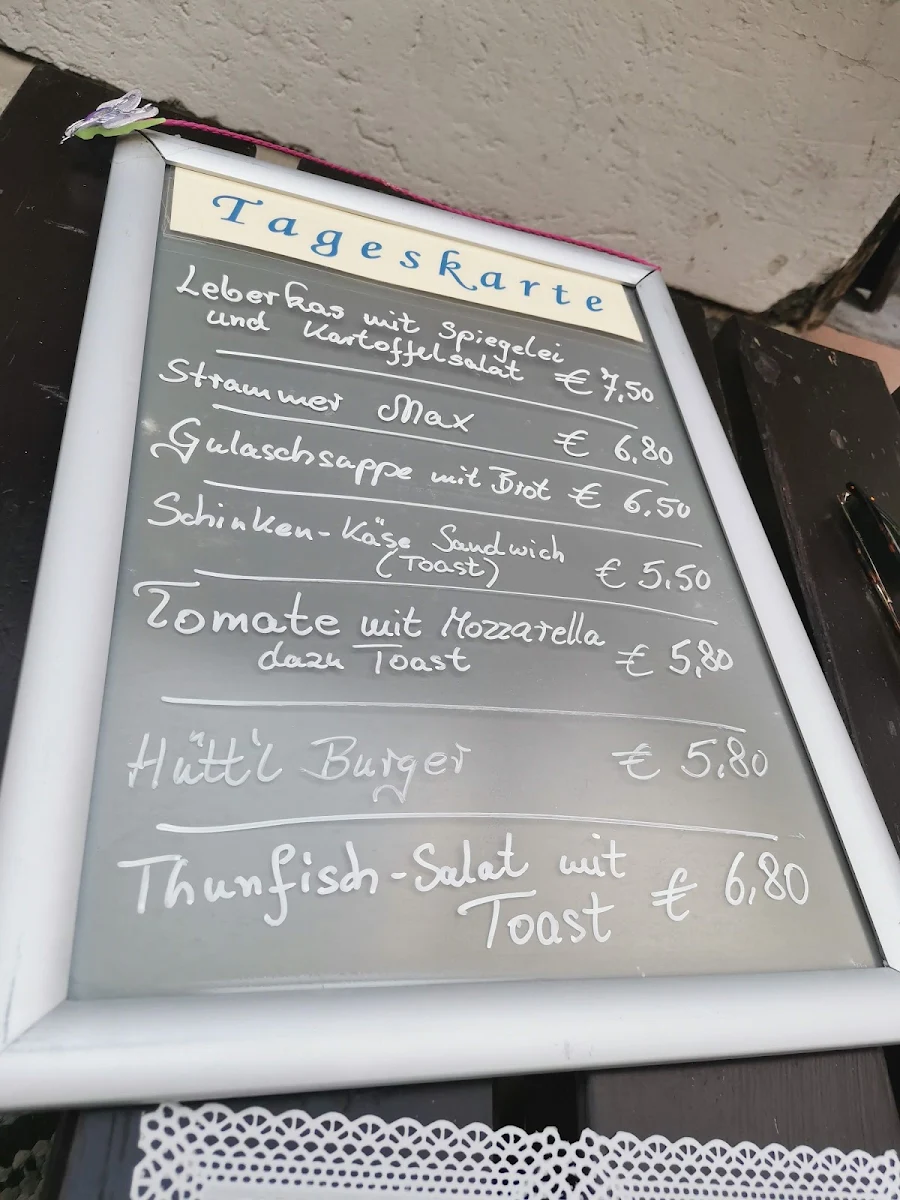 Tageskarte
Leberkas mit Spiegelei
und Kartoffelsalat € 7,50
Strammer Max € 6,80
Gulaschsuppe mit Brot € 6,50
Schinken-Käse Sandwich
(Toast) € 5,50
Tomate mit Mozzarella
dazu Toast € 5,80
Hütt'l Burger € 5,80
Thunfisch-Salat mit
Toast € 6,80